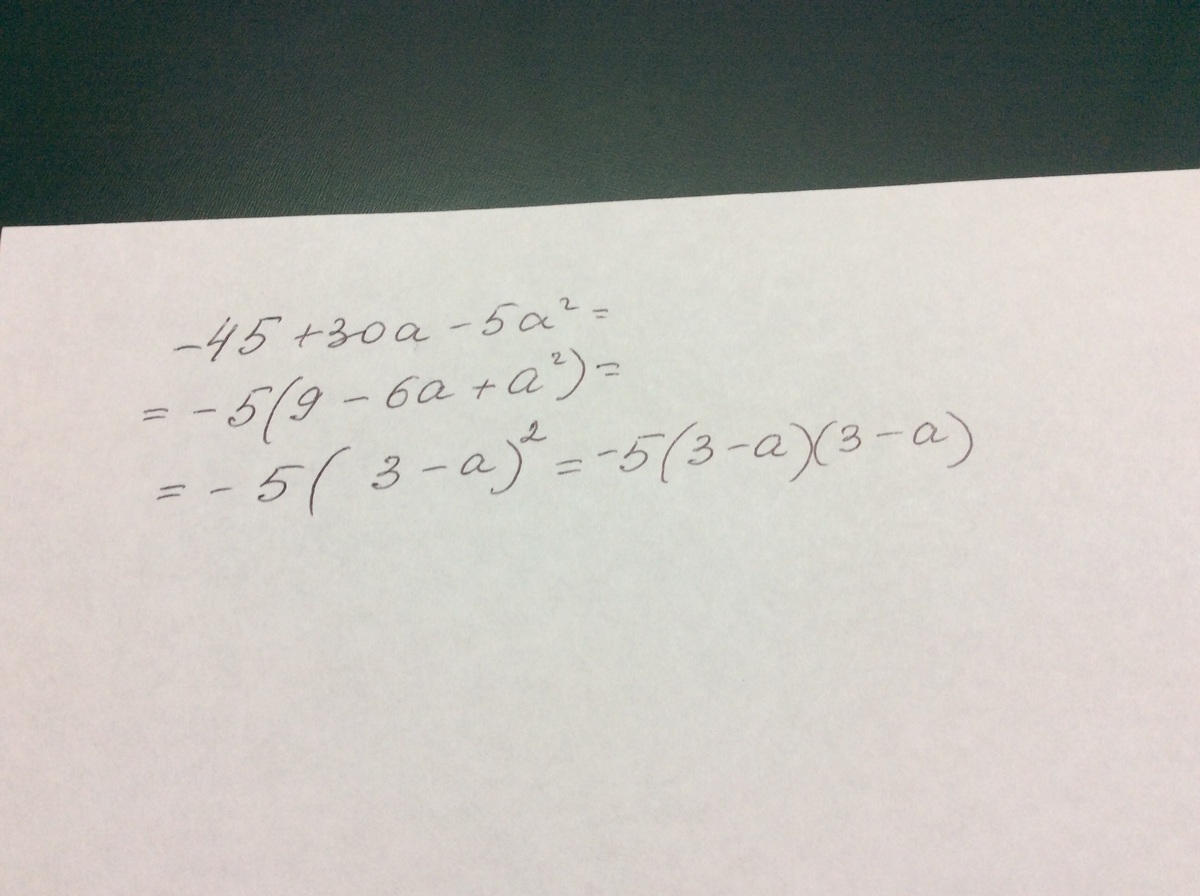 -45+30a-5a²=
=-5(9-6a+a²)=
=-5(3-a)²=-5(3-a)(3-a)